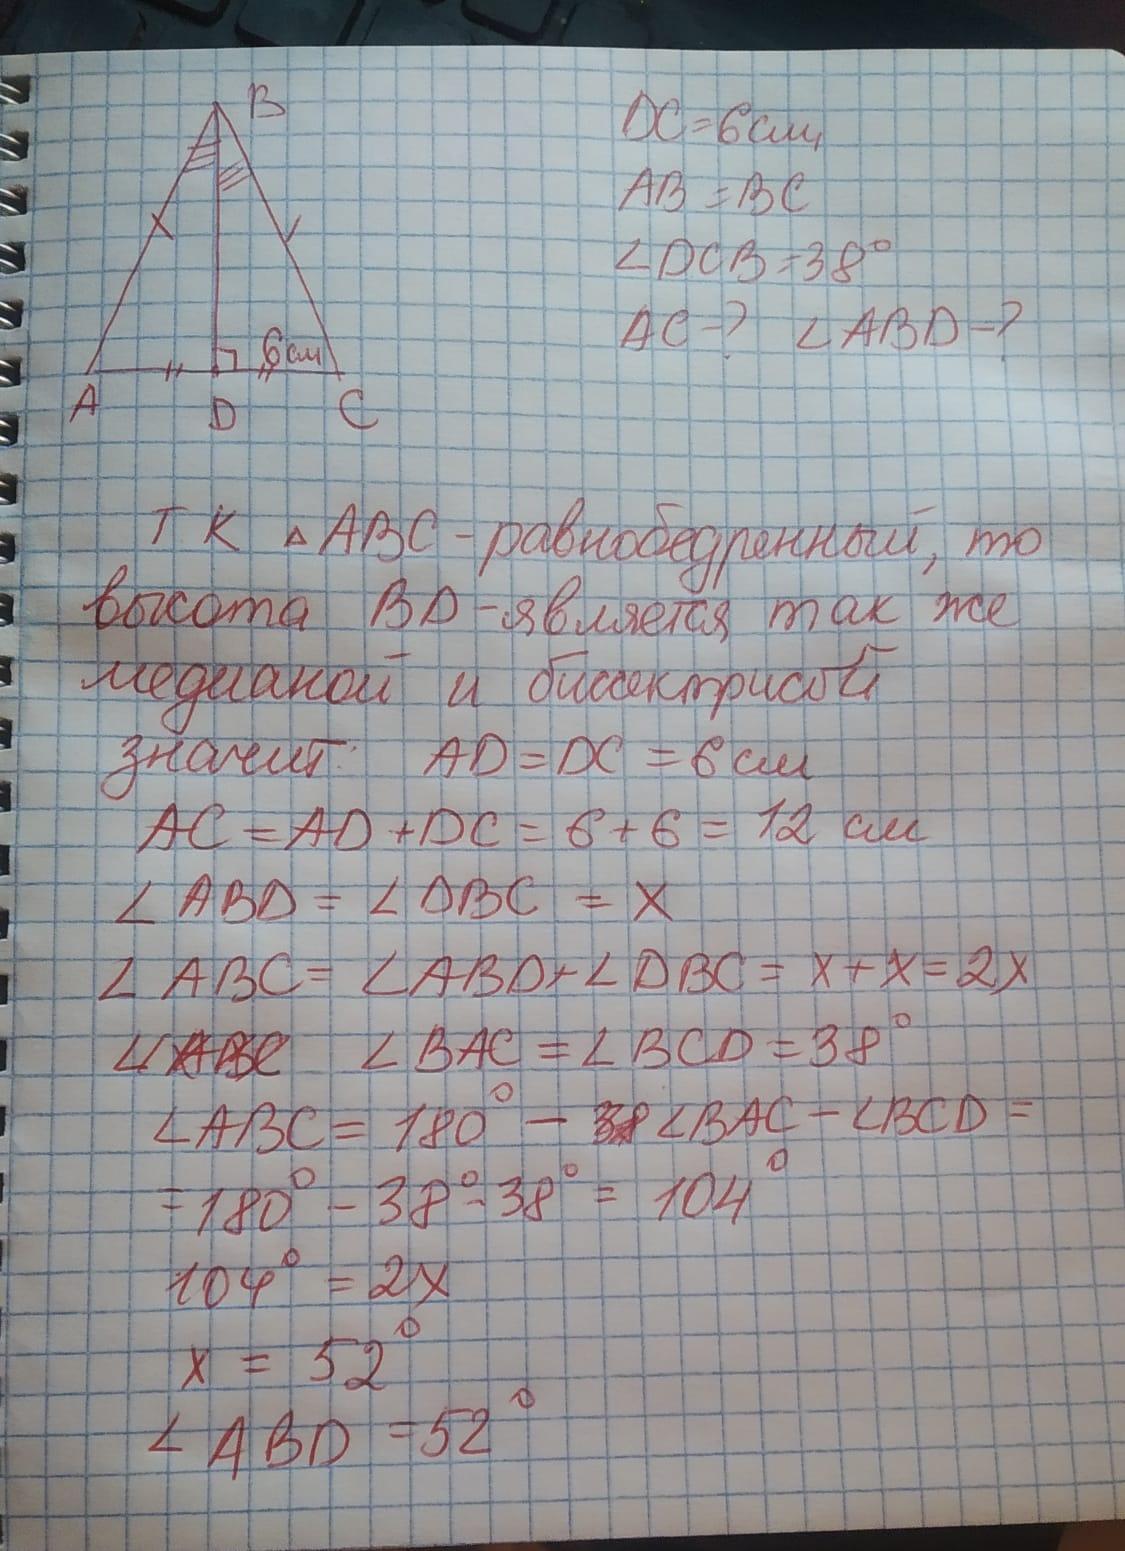 B
DC=6см
AB=BC
∠DCB=38°
AC-? ∠ABD-?
6см
A D C
Т К △ABC-равнобедренный, то
высота BD-является так же
медианой и биссектрисой
значит: AD=DC=6см
AC=AD+DC=6+6=12 см
∠ABD=∠DBC=x
∠ABC=∠ABD+∠DBC=x+x=2x
∠BAC=∠BCD=38°
∠ABC=180°-∠BAC-∠BCD=
=180°-38°-38°=104°
104°=2x
x=52°
∠ABD=52°